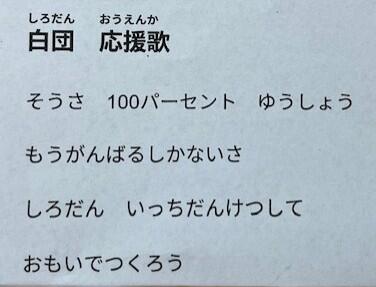 しろだん　おうえんか
白団　応援歌
そうさ　100パーセント　ゆうしょう
もうがんばるしかないさ
しろだん　いっちだんけつして
おもいでつくろう